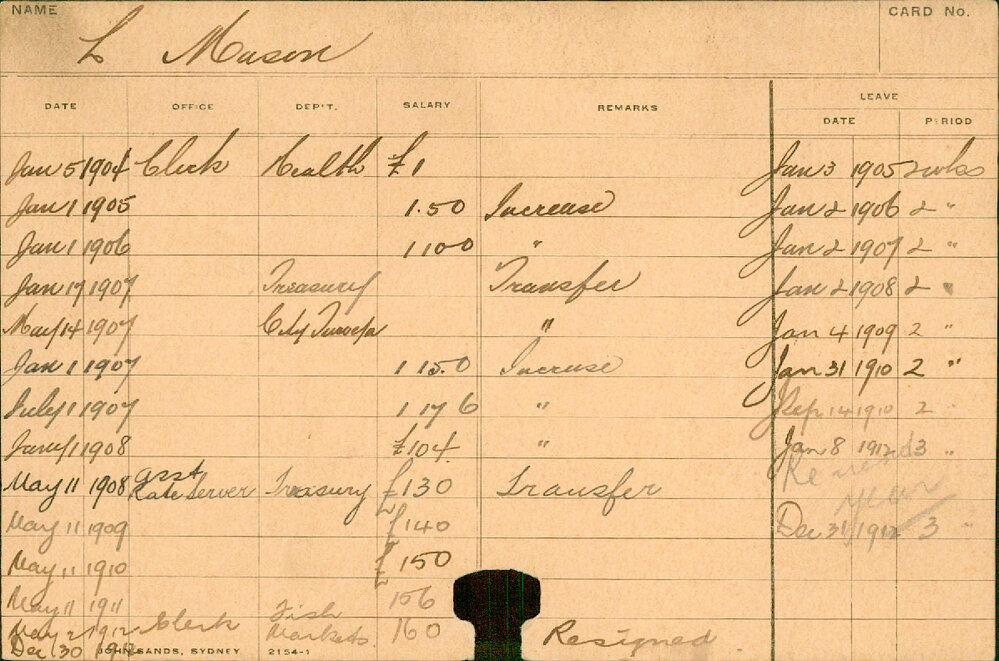 NAME CARD No.
L Mason
DATE OFFICE DEP'T. SALARY REMARKS LEAVE
DATE PERIOD
Jan 5 1904 Clerk Health £1 Jan 3 1905 2 wks
Jan 1 1905 1.5.0 Increase Jan 2 1906 2 "
Jan 1 1906 1 10 0 " Jan 2 1907 2 "
Jan 17 1907 Treasury Transfer Jan 2 1908 2 "
May 14 1907 City " Jan 4 1909 2 "
Jan 1 1907 1 15.0 Increase Jan 31 1910 2 "
July 1 1907 1 17 6 " Sep 14 1910 2 "
Jany 1 1908 £104 " Jan 8 1912 3 "
May 11 1908 Asst Rate Server Treasury £130 Transfer
year
May 11 1909 £140 Dec 31 1912 3 "
May 11 1910 £150
May 11 1911 156
May 2 1912 Clerk Fish Markets 160 Resigned
Dec 30 1912
JOHN SANDS, SYDNEY 2154-1